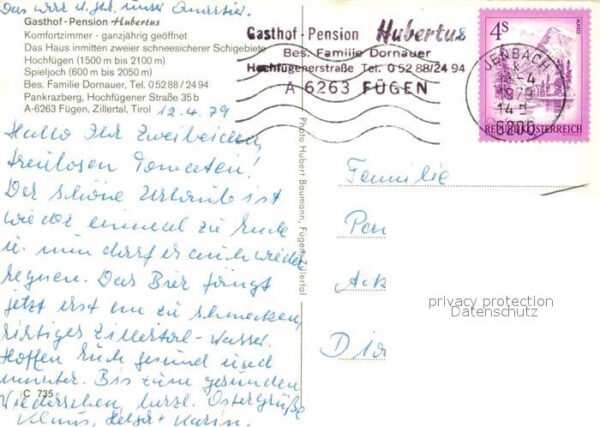 Das war u. ist unser Quartier.
Gasthof - Pension Hubertus
Komfortzimmer - ganzjährig geöffnet
Das Haus inmitten zweier schneesicherer Schigebiete
Hochfügen (1500 m bis 2100 m)
Spieljoch (600 m bis 2050 m)
Bes. Familie Dornauer, Tel. 05288/2494
Pankrazberg, Hochfügener Straße 35b
A-6263 Fügen, Zillertal, Tirol
12.4.79
Hallo Ihr Zweibeiden,
treulosen Tomaten!
Der schöne Urlaub ist
wieder einmal zu Ende
u. nun darf es auch wieder
regnen. Das Bier fängt
jetzt erst an zu schmecken,
richtiges Zillertal-Wasser.
Hoffen Euch gesund und
munter. Bis zum gesunden
Wiedersehen herzl. Ostergrüße
Klaus, Helga + Karin.
C 735
Photo Hubert Baumann, Fügen, Zillertal
Gasthof - Pension Hubertus
Bes. Familie Dornauer
Hochfügenerstraße Tel. 05288/24 94
A-6263 FÜGEN
4S
ALMSEE
REPUBLIK ÖSTERREICH
JENBACH
1979
6200
Familie
Pen
Ack
Dia
privacy protection
Datenschutz